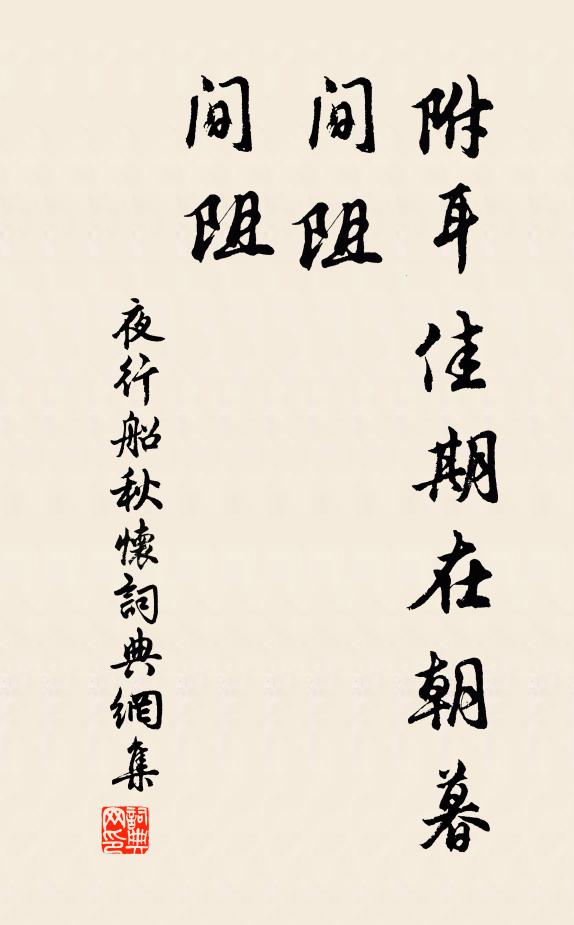 附耳佳期在朝暮
间阻
间阻
夜行船秋懷詞典網集
詞典网印